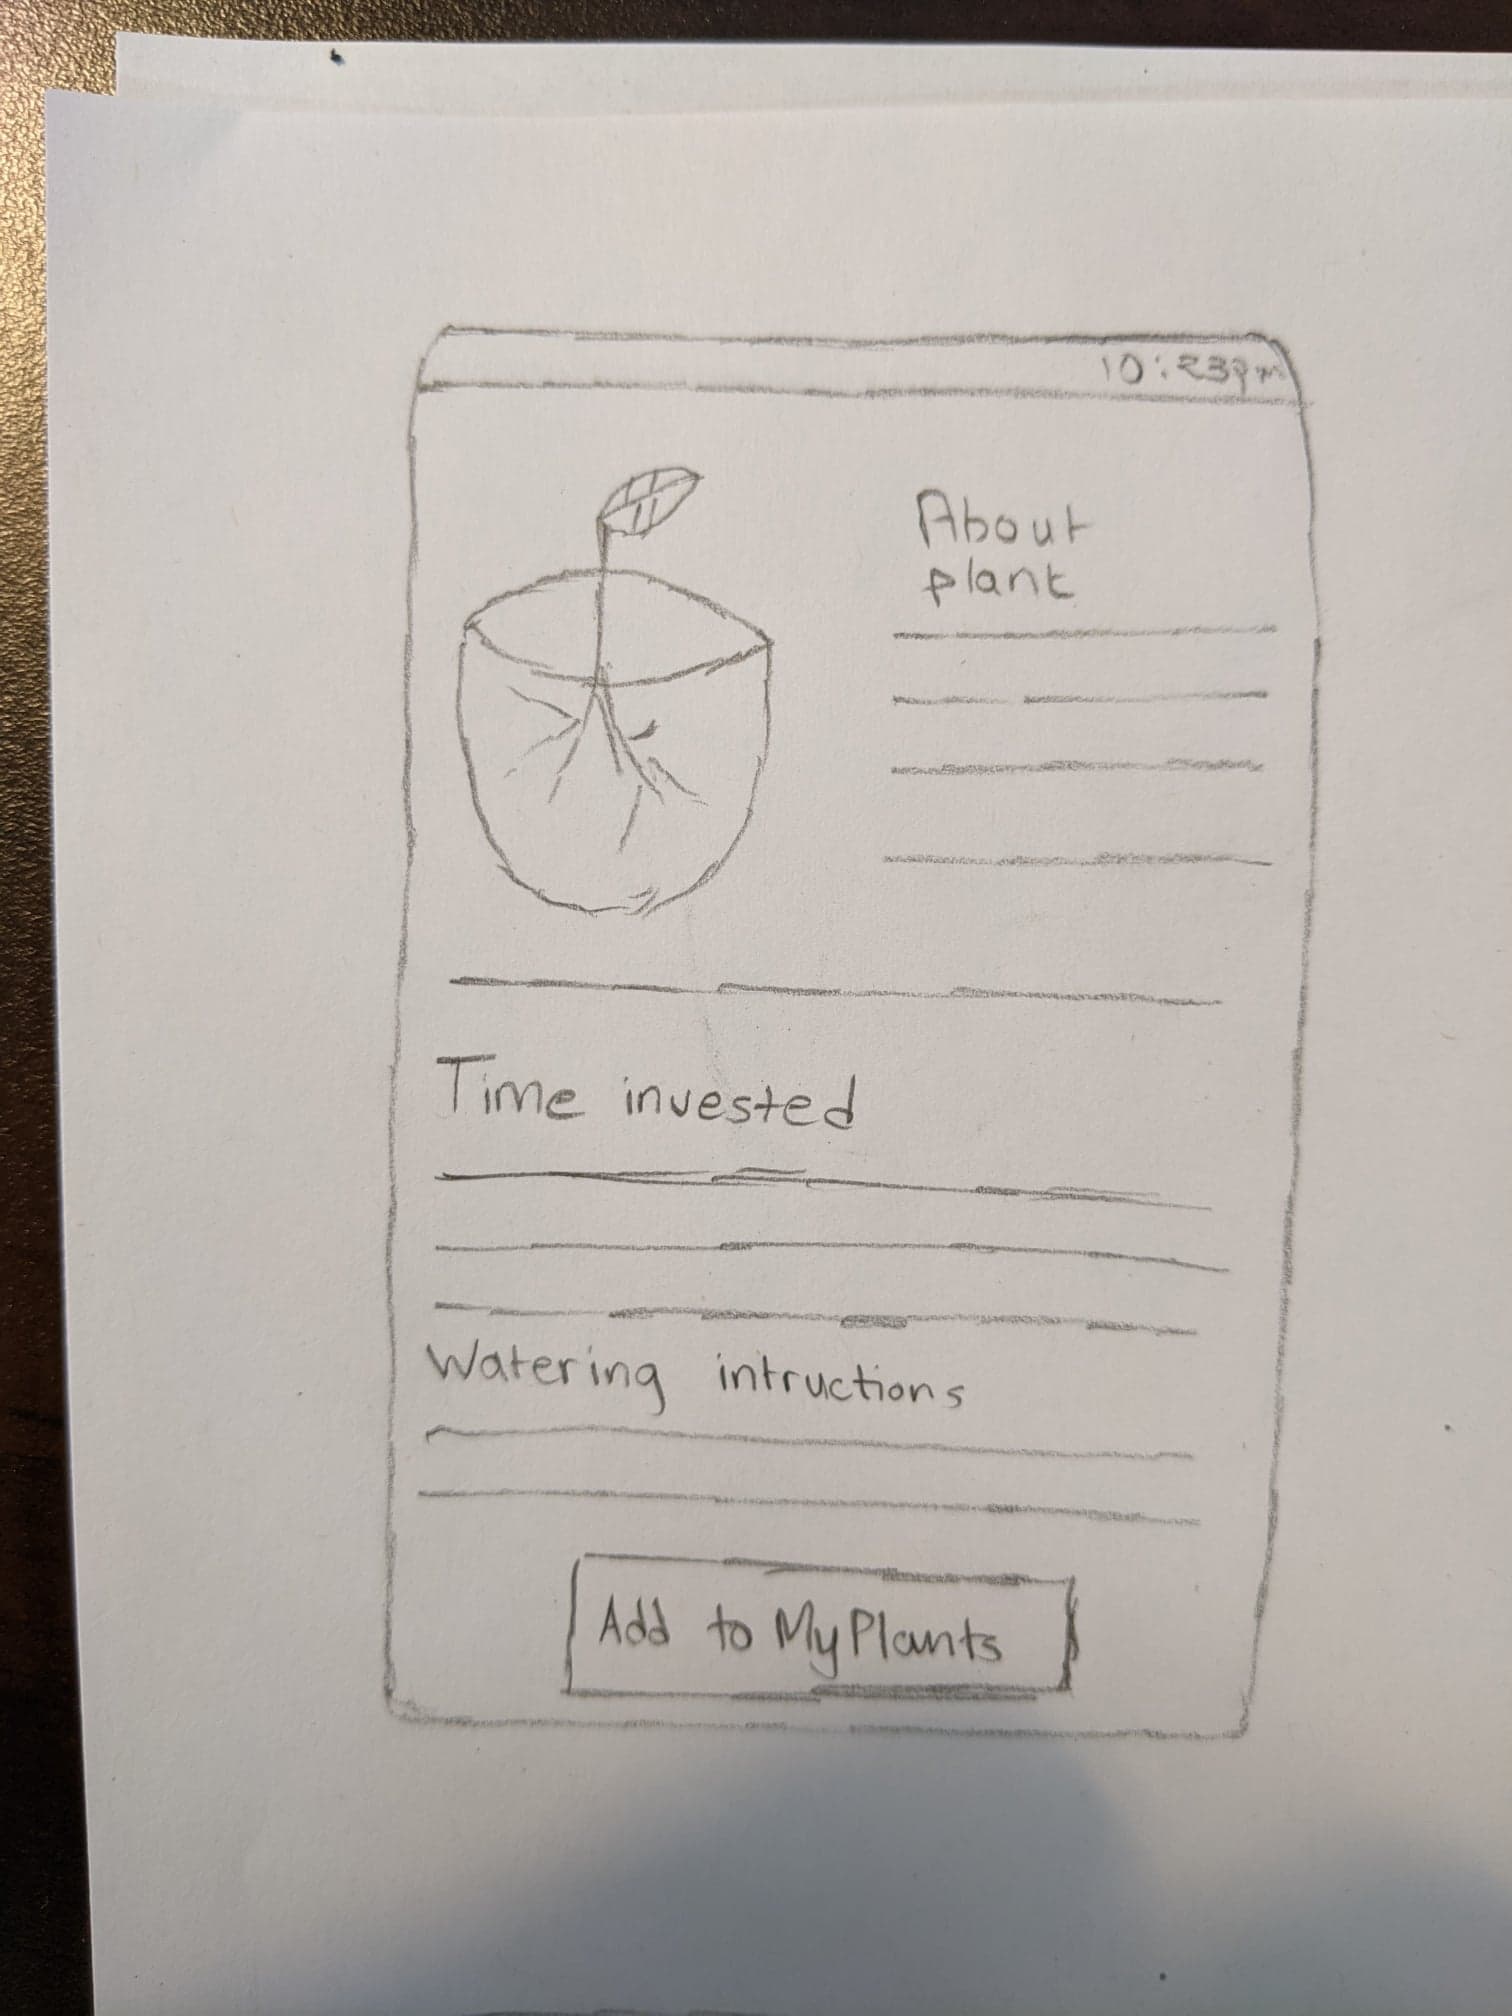 10:23pm
About
plant
Time invested
Watering intructions
Add to My Plants